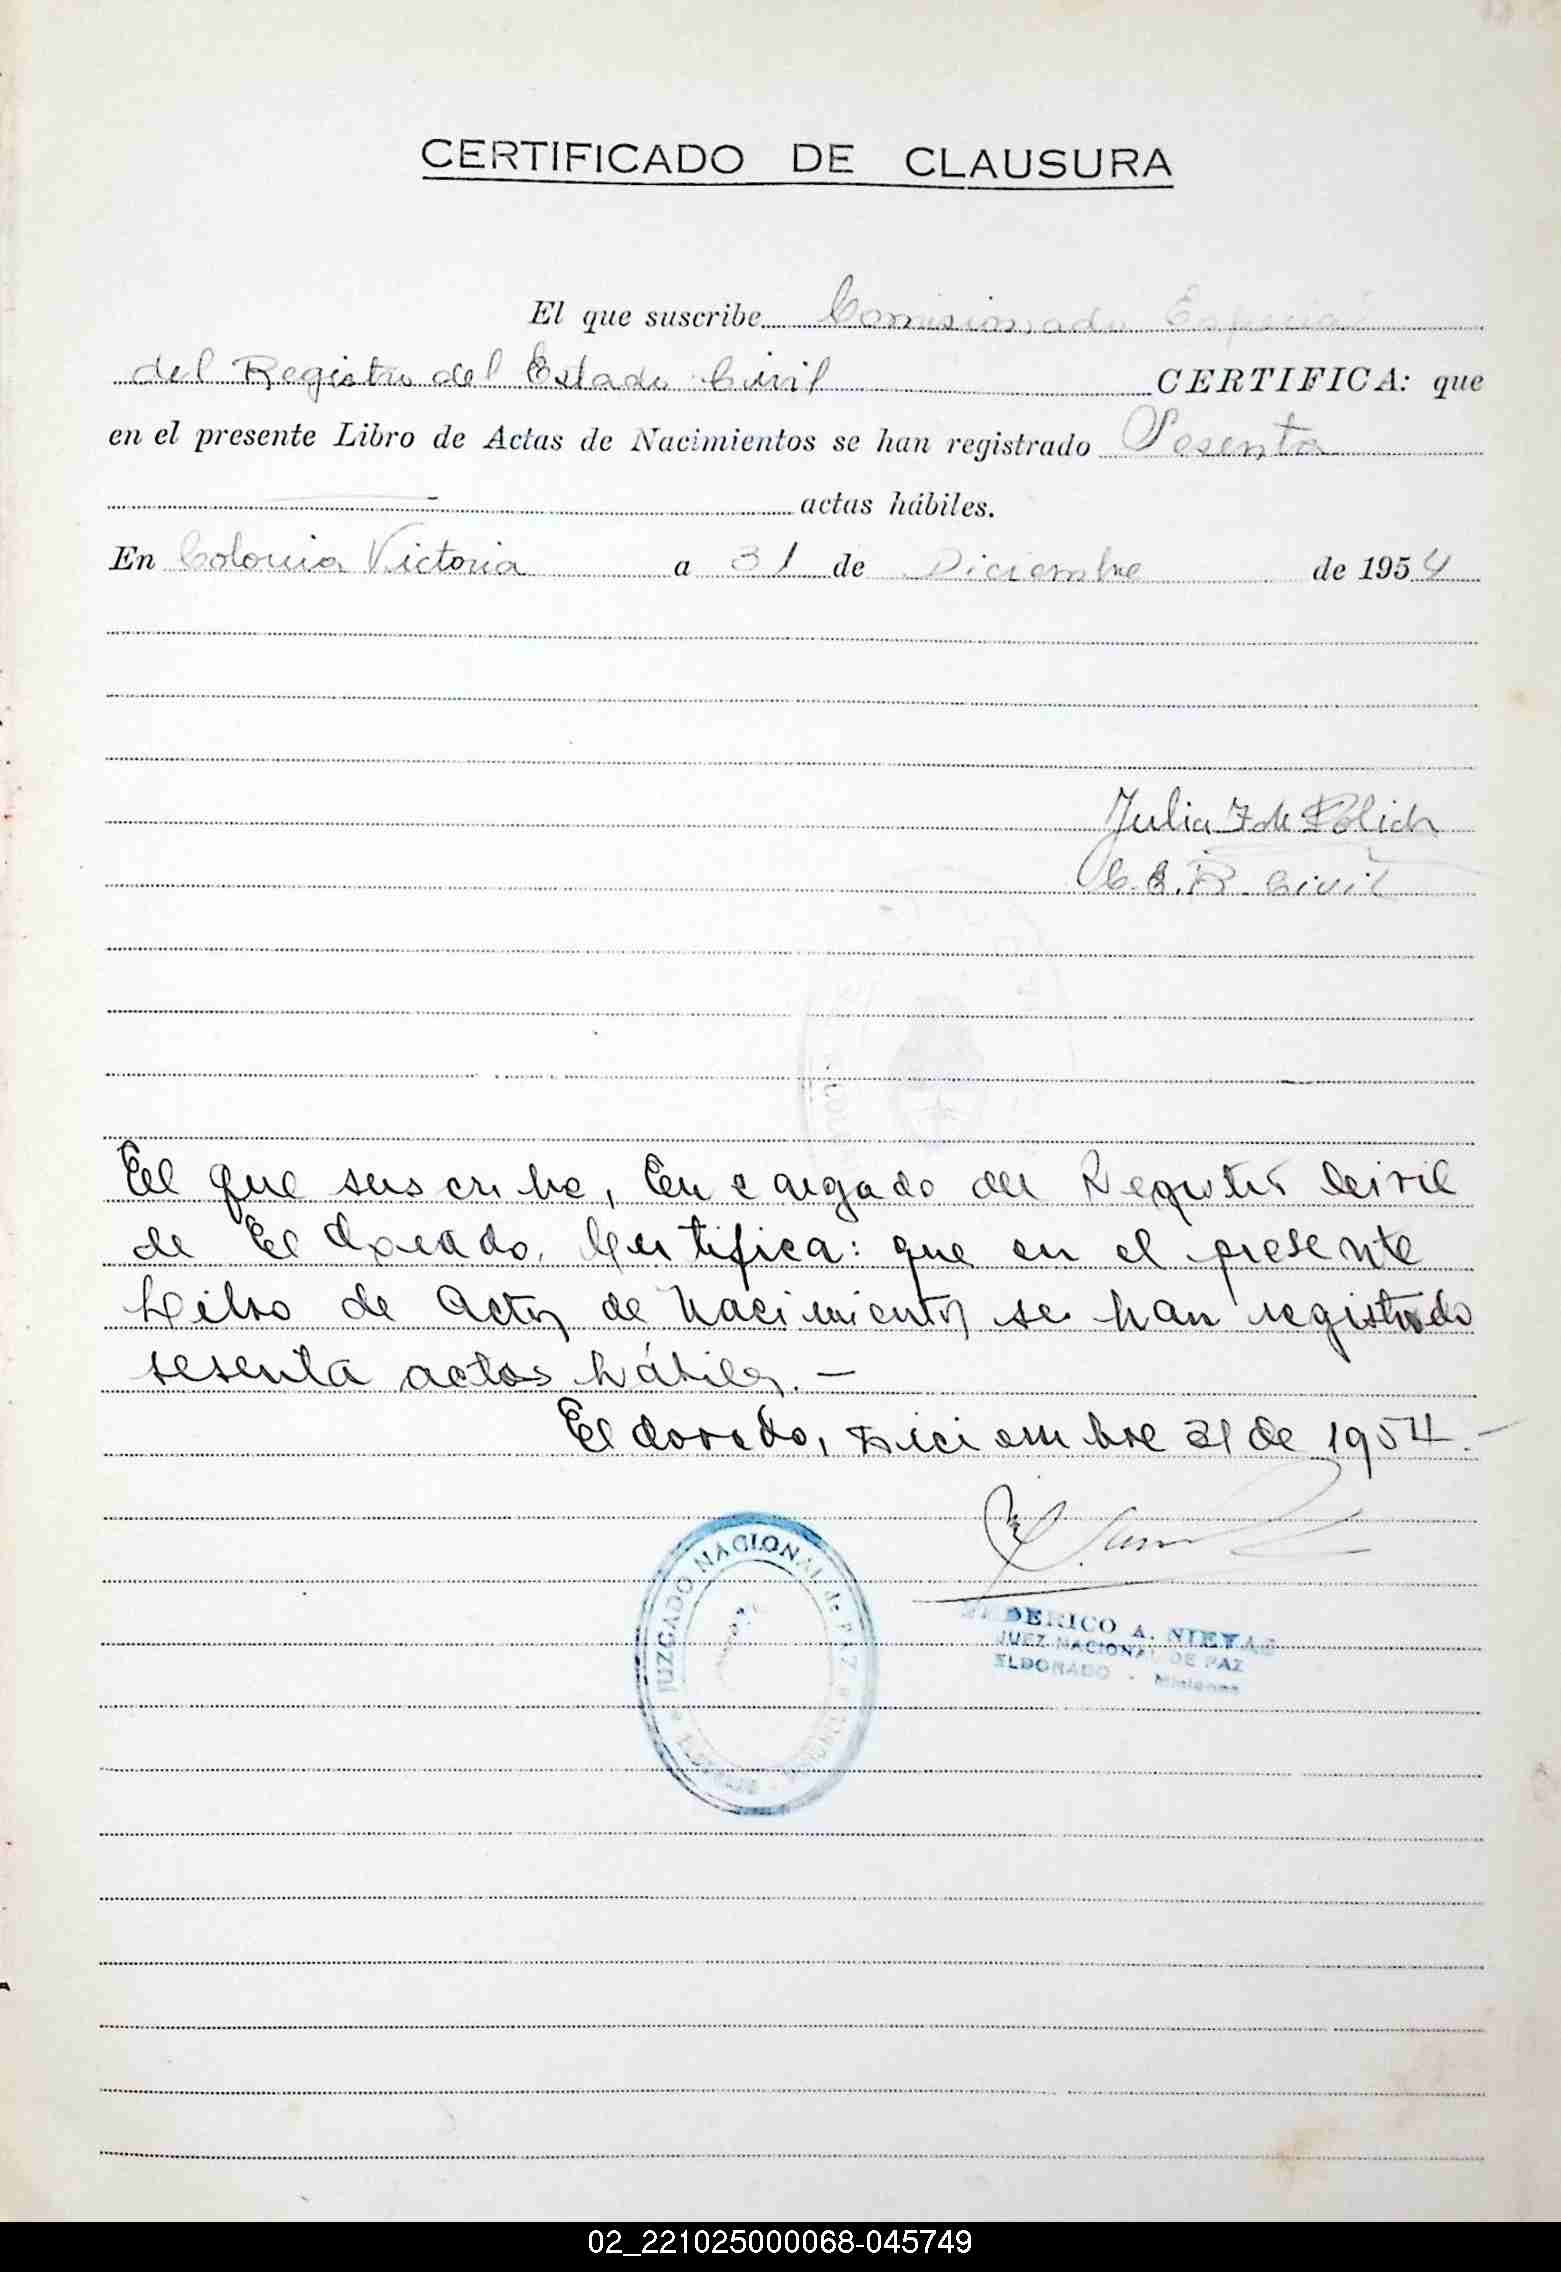 CERTIFICADO DE CLAUSURA
El que suscribe Comisionado Especial
del Registro del Estado Civil CERTIFICA: que
en el presente Libro de Actas de Nacimientos se han registrado Sesenta
actas hábiles.
En Colonia Victoria a 31 de Diciembre de 1954
Julia F de
C. E. R. Civil
El que suscribe, Encargado del Registro Civil
de El dorado, Certifica: que en el presente
Libro de Actas de Nacimientos se han registrado
sesenta actas hábiles. —
El dorado, Diciembre 31 de 1954.-
JUZGADO NACIONAL de PAZ
FEDERICO A. NIEVAS
JUEZ NACIONAL DE PAZ
ELDORADO - Misiones
02_221025000068-045749